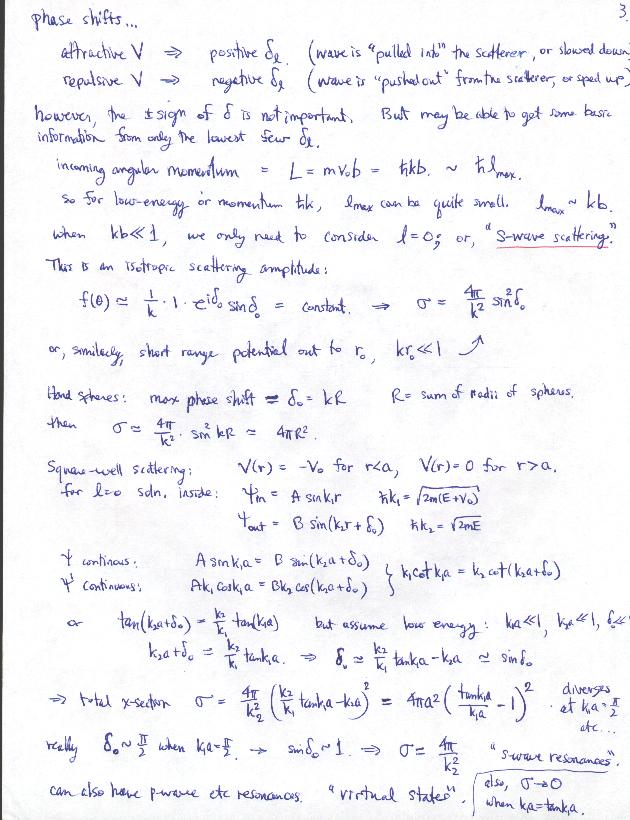 3.
phase shifts...
attractive V ⇒ positive δₗ. (wave is "pulled into" the scatterer, or slowed down)
repulsive V ⇒ negative δₗ (wave is "pushed out" from the scatterer, or sped up)
however, the ± sign of δ is not important. But may be able to get some basic
information from only the lowest few δₗ.
incoming angular momentum = L = mv₀b = ħkb. ~ ħlₘₐₓ.
so for low-energy or momentum ħk, lmax can be quite small. lmax ~ kb.
when kb≪1, we only need to consider l=0; or, "S-wave scattering."
This is an isotropic scattering amplitude:
f(θ) ≃ 1/k · 1 · e^{iδ₀} sin δ₀ = constant. ⇒ σ = 4π/k² sin²δ₀
or, similarly, short range potential out to r₀, kr₀≪1
Hard spheres: max phase shift = δ₀ = kR R = sum of radii of spheres.
then σ ≃ 4π/k² · sin² kR ≃ 4πR².
Square-well scattering: V(r) = -V₀ for r<a, V(r) = 0 for r>a.
for l=0 soln. inside: ψin = A sin k₁r ħk₁ = √(2m(E+V₀))
ψout = B sin(k₂r + δ₀) ħk₂ = √(2mE)
ψ continous: A sin k₁a = B sin(k₂a+δ₀) } k₁cot k₁a = k₂ cot(k₂a+δ₀)
ψ' continuous: Ak₁ cos k₁a = Bk₂ cos(k₂a+δ₀)
or tan(k₂a+δ₀) = k₂/k₁ tan(k₁a) but assume low energy: k₁a≪1, k₂a≪1, δ₀≪
k₂a+δ₀ = k₂/k₁ tan k₁a. ⇒ δ₀ ≃ k₂/k₁ tan k₁a - k₂a ≃ sin δ₀
⇒ total x-section σ = 4π/k₂² (k₂/k₁ tan k₁a - k₂a)² = 4πa² (tan k₁a/k₁a - 1)². diverges at k₁a = π/2 etc...
really δ₀ ~ π/2 when k₁a = π/2. → sin δ₀ ~ 1. ⇒ σ = 4π/k₂² "s-wave resonances".
can also have p-wave etc resonances. "virtual states". also, σ→0
when k₁a = tan k₁a.